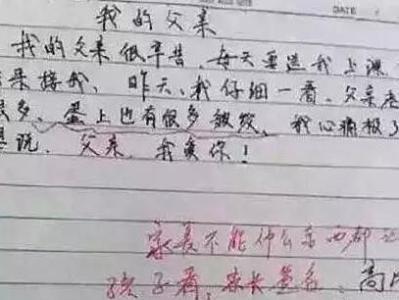 DATE
我的父亲
我的父亲很辛苦,每天要送我上课,
来接我,昨天,我仔细一看,父亲老
很多,蛋上也有很多皱纹,我心痛极了
想说,父亲,我爱你!
家长不能什么东西都
孩子看,家长签名:高